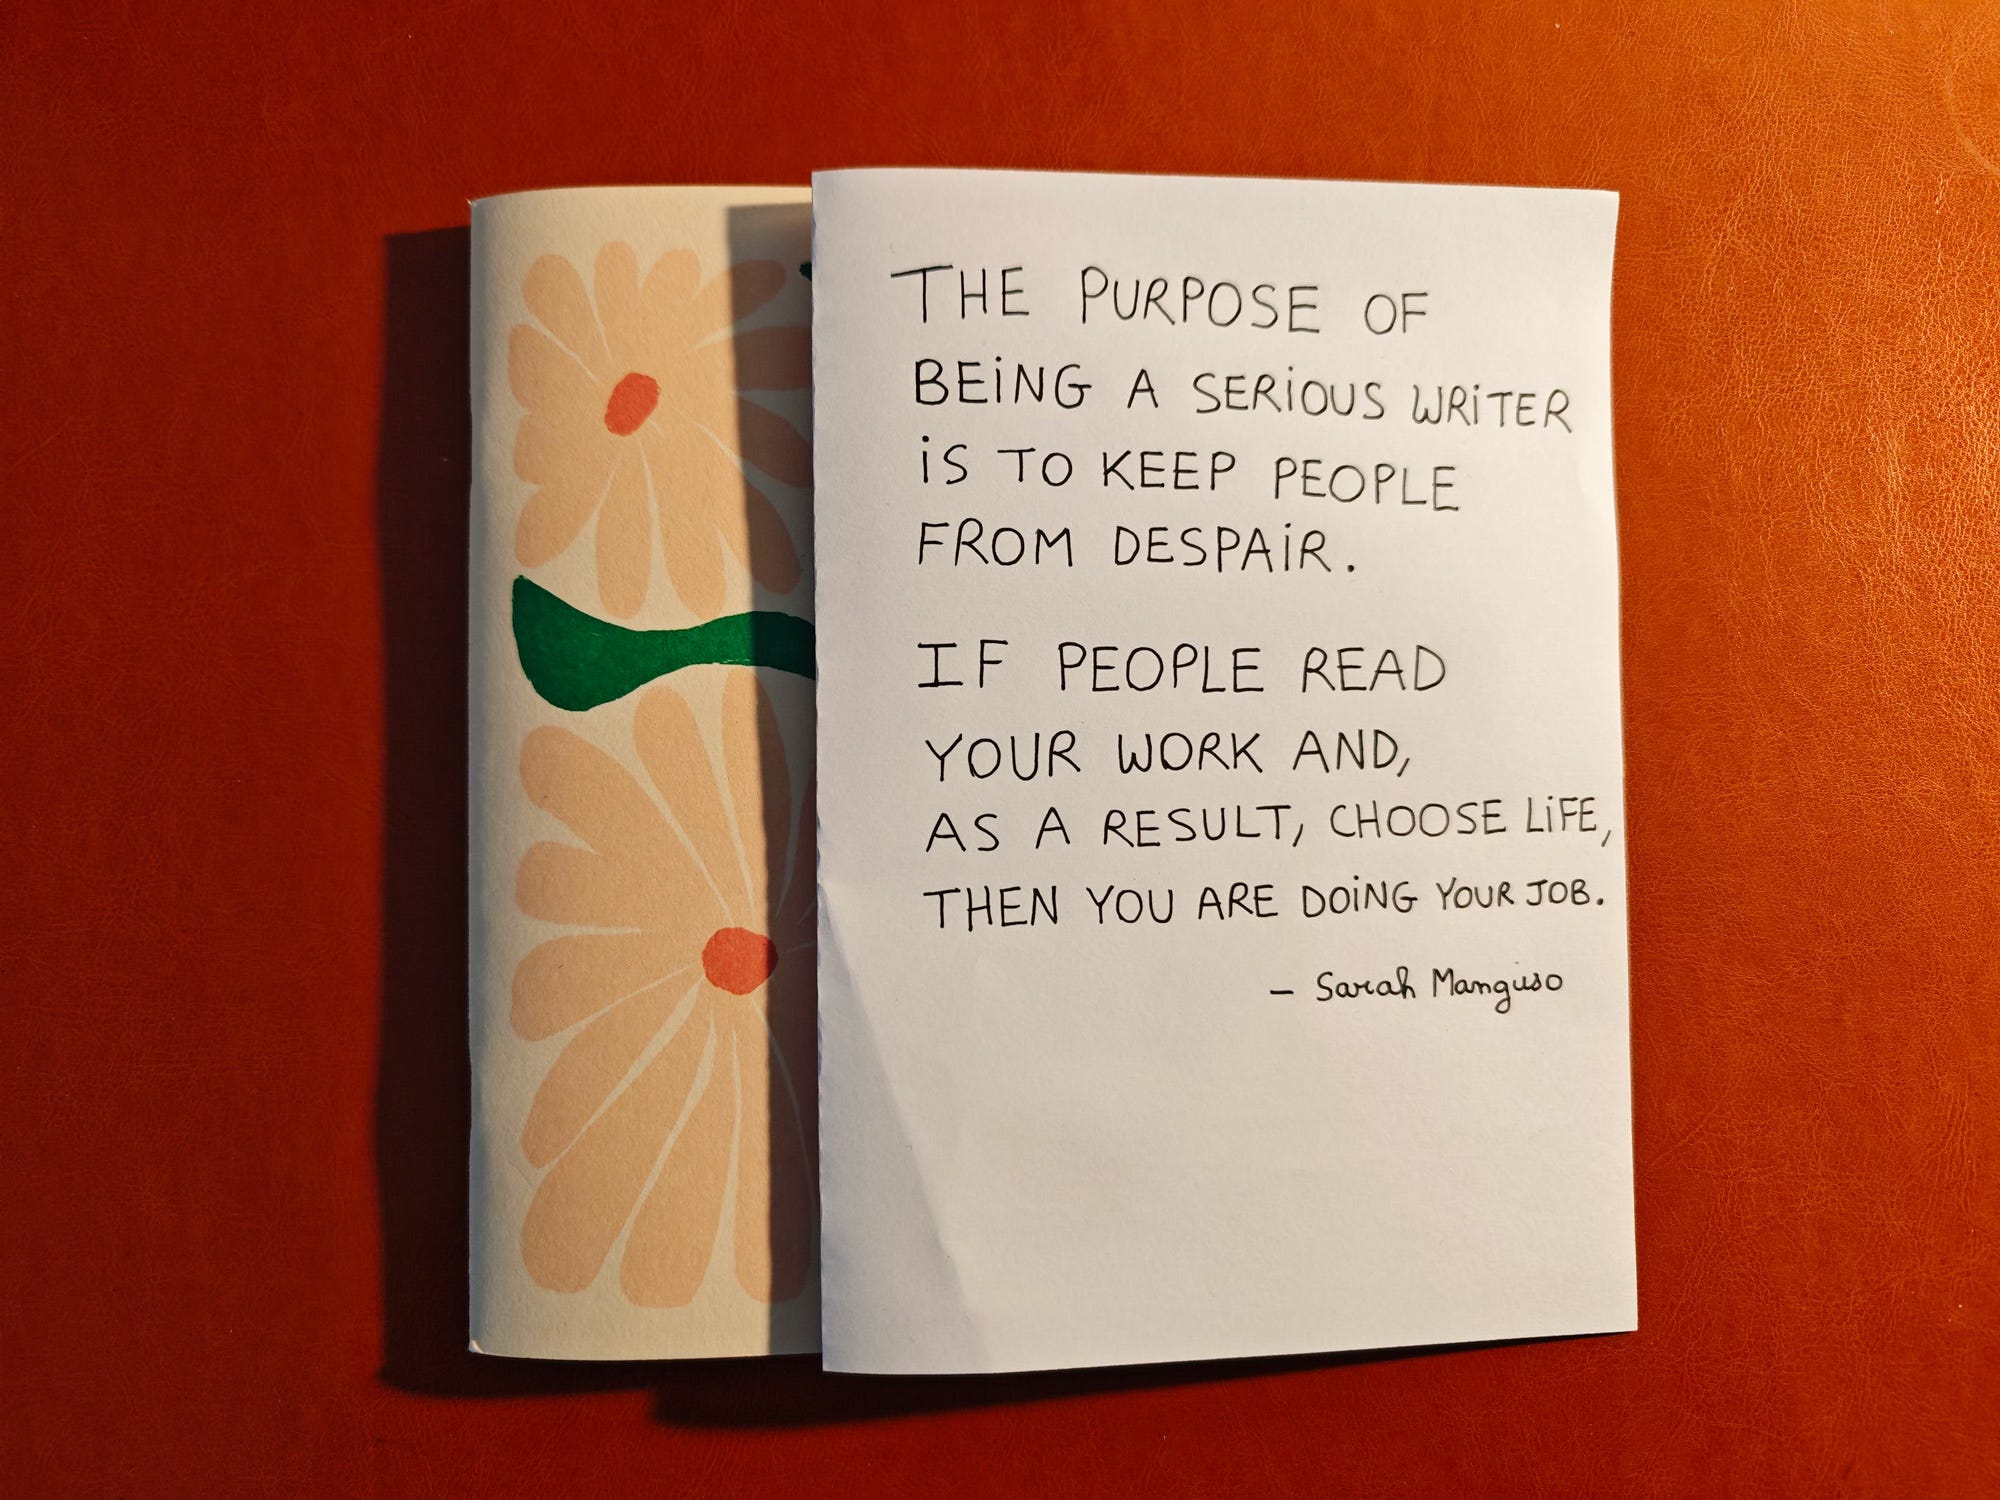 THE PURPOSE OF
BEING A SERIOUS WRITER
IS TO KEEP PEOPLE
FROM DESPAIR.
IF PEOPLE READ
YOUR WORK AND,
AS A RESULT, CHOOSE LIFE,
THEN YOU ARE DOING YOUR JOB.
– Sarah Manguso